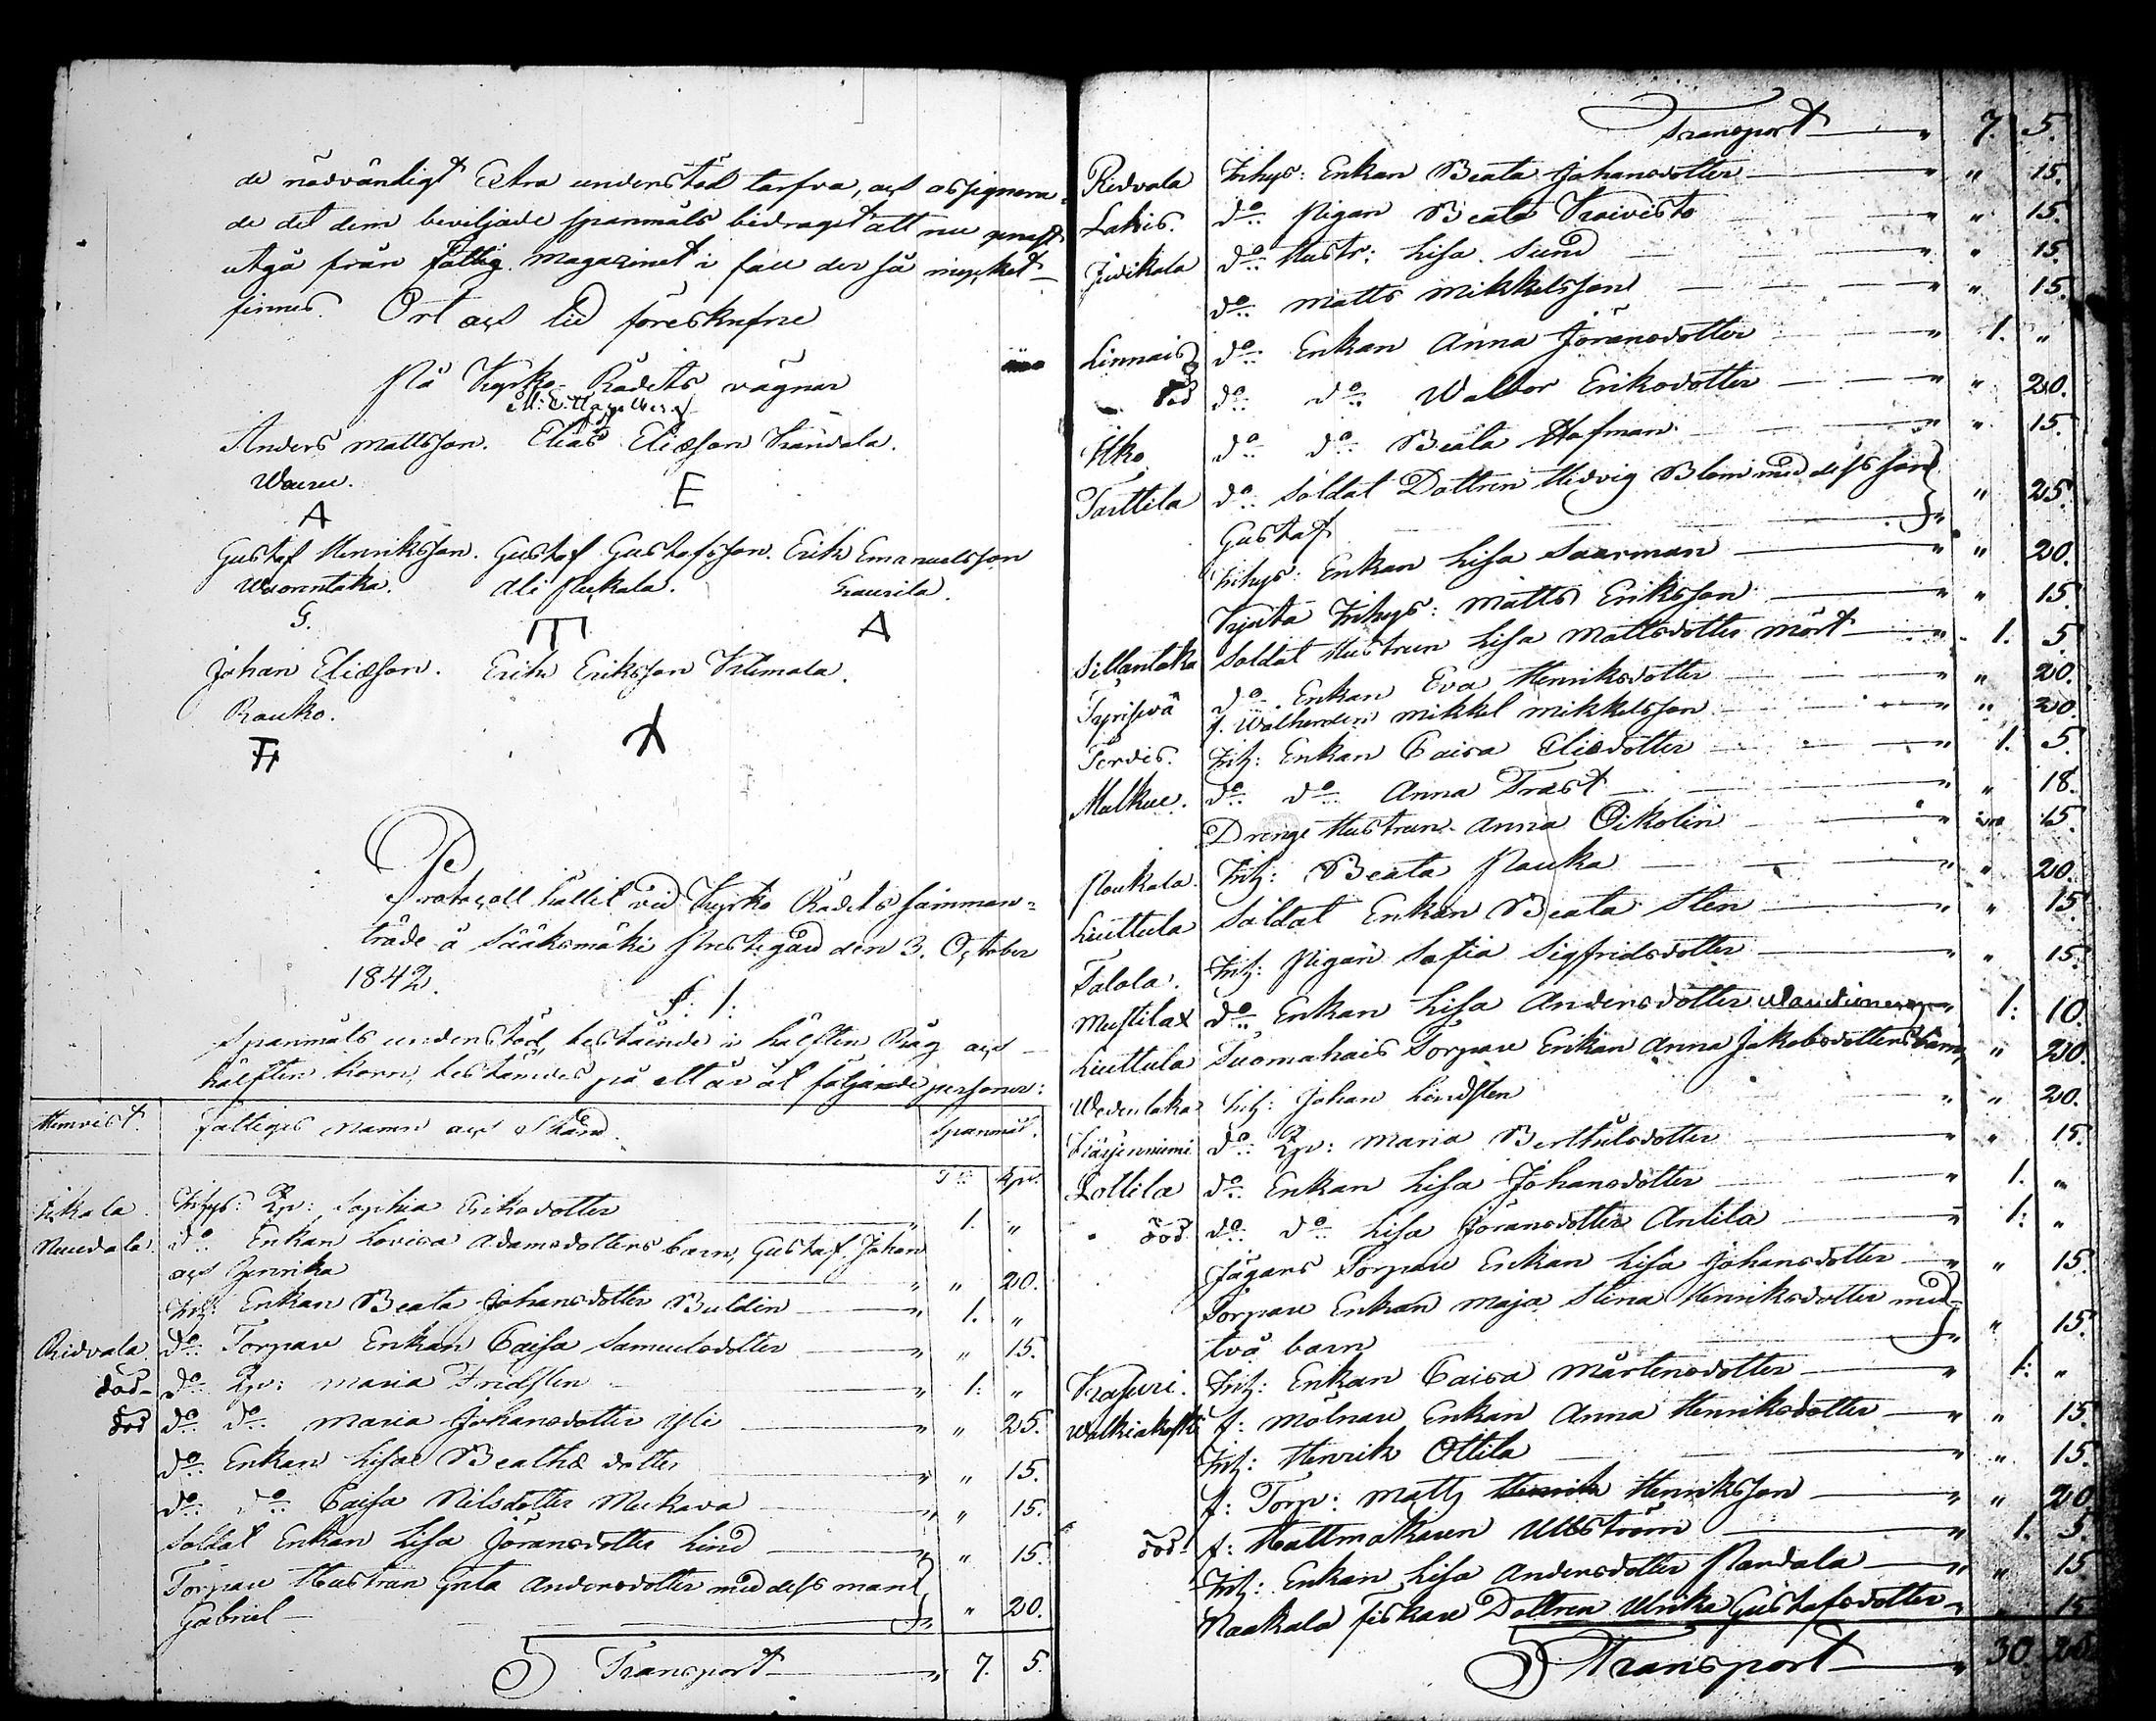 de nödvändigt Extra understöd tarfva, och assignera-
de det dem beviljade spanmåls bidraget att nu genast
utgå från Fattig Magazinet i fall der så mycket
finnes. Ort och tid föreskrefne
På Kyrko-Rådets vägnar
Anders Mattsson. Elias Eliæson Kändala.
A E
Gustaf Henriksson. Gustaf Gustafsson. Erik Emanuelsson
Wuorentaka. Ali Laurila.
G. A
Johan Eliæson. Erik Eriksson Kilimala.
Rauko.
Protocoll hållit vid Kyrko Rådets samman-
träde å Sääksmäki Prestegård den 3. October
1842.
§: 1:
Spanmåls understöd bestående i hälften Råg och
hälften korn, bestämdes på ett år åt följande personer:
Hemvist. Fattiges Namn och Stånd. Spanmål.
T:r Kpr.
Inhys: Pig: Sophia Eriksdotter " 1. "
do Enkan Lovisa Adamsdotters barn, Gustaf Johan
och Henrika " " 20.
Inh: Enkan Beata Johansdotter Buldin " 1. "
Ridvala. do: Torpare Enkan Caisa Samuelsdotter " " 15.
död do: Pig: Maria Fridsten " 1: "
död do: do: Maria Johansdotter Yli " " 25.
do: Enkan Lisa dotter " " 15.
do: do: Caisa Nilsdotter " " 15.
Soldat Enkan Lisa Jöransdotter Lind " " 15.
Torpare Hustrun Greta Andersdotter med dess man
Gabriel " " 20.
Transport " 7. 5.
Transport " 7. 5.
Ridvala Inhys: Enkan Beata Johansdotter " " 15.
Lahis. do: Pigan Beata Koivisto " " 15.
Jutikala do: Hustr: Lisa Sund " " 15.
do: Matts Mikkelsson " " 15.
Linnais do: Enkan Anna Jöransdotter " 1. "
död do: do: Walbor Eriksdotter " " 20.
Ilko do: do: Beata Hofman " " 15.
Tarttila do: Soldat Dottren Hedvig Blom med dess son
Gustaf " " 25.
Inhys: Enkan Lisa Saarman " " 20.
Inhys: Matts Eriksson " " 15.
Sillantaka Soldat Hustrun Lisa Mattsdotter Mört " 1. 5.
do: Enkan Eva Henriksdotter " " 20.
f. Mikkel Mikkelsson " " 20.
Inh: Enkan Caisa Eliædotter " 1. 5.
Malkue. do: do: Anna Trast " " 18.
Drenge Hustrun Anna Oikolin " " 15.
Inh: Beata Pauka " " 20.
Liuttula Soldat Enkan Beata Sten " " 15.
Inh: Pigan Sofia Sigfridsdotter " " 15.
do: Enkan Lisa Andersdotter " 1: 10.
Liuttula Suomahais Torpare Enkan Anna Jakobsdotters barn " " 20.
Wedentaka Inh: Johan Lindsten " " 20.
Kärjenniemi do: Pig: Maria Berthilsdotter " " 15.
Lottila do: Enkan Lisa Johansdotter " 1. "
död do: do: Lisa Jöransdotter Antila " 1: "
Jägars Torpare Enkan Lisa Johansdotter " " 15.
Torpare Enkan Maja Stina Henriksdotter med
två barn " " 15.
Inh: Enkan Caisa Mårtensdotter " 1: "
Walkiakoski f: Mölnare Enkan Anna Henriksdotter " " 15.
Inh: Henrik Ottila " " 15.
f: Torp: Matts Henrik Henriksson " " 20
död f: Hattmakaren Ullström " 1. 5.
Inh: Enkan Lisa Andersdotter " " 15
Naakala fiskare Dottren Ulrika Gustafsdotter " " 15
Transport " 30 25